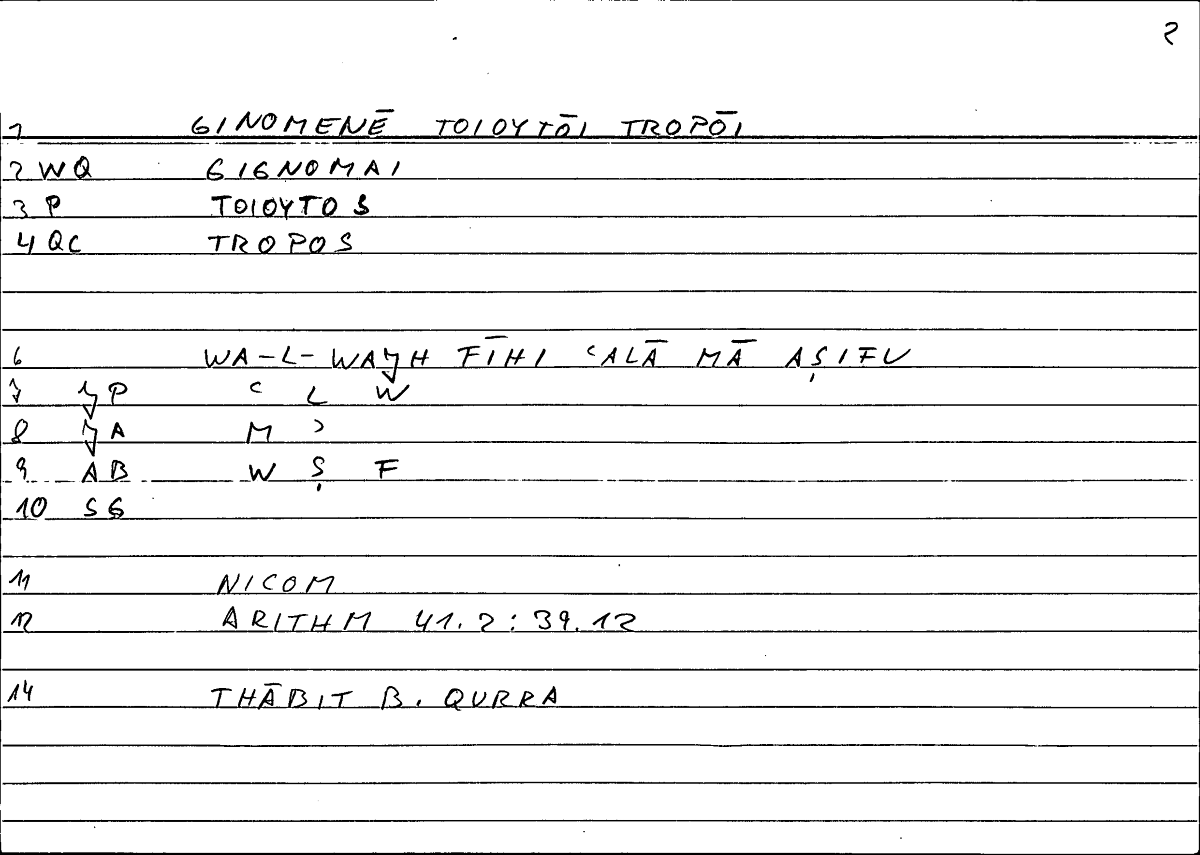 2
1 GINOMENĒ TOIOYTŌI TROPŌI
2 WQ GIGNOMAI
3 P TOIOYTOS
4 QC TROPOS
6 WA-L-WAǦH FĪHI ʿALĀ MĀ AṢIFU
7 ǦP ʿ L W
8 ǦA M ʾ
9 AB W Ṣ F
10 SG
11 NICOM
12 ARITHM 41.2:39.12
14 THĀBIT B. QURRA